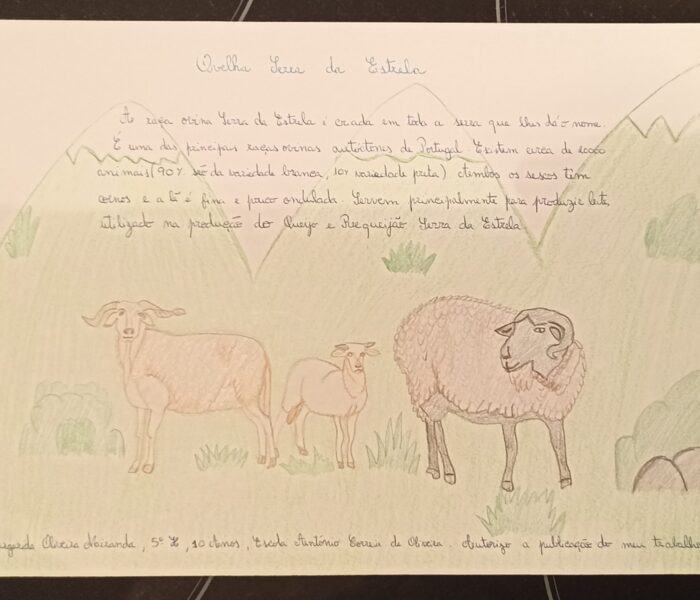 Ovelha Serra da Estrela
A raça ovina Serra da Estrela é criada em toda a serra que lhes dá o nome.
É uma das principais raças ovinas autóctones de Portugal. Existem cerca de
animais (90% são da variedade branca, 10% variedade preta) Ambos os sexos têm
cornos e a lã é fina e pouco ondulada. Servem principalmente para produzir leite,
utilizado na produção do Queijo e Requeijão Serra da Estrela
Oliveira, 5º, 10 Anos, Escola António Correia de Oliveira. Autorizo a publicação do meu trabalho